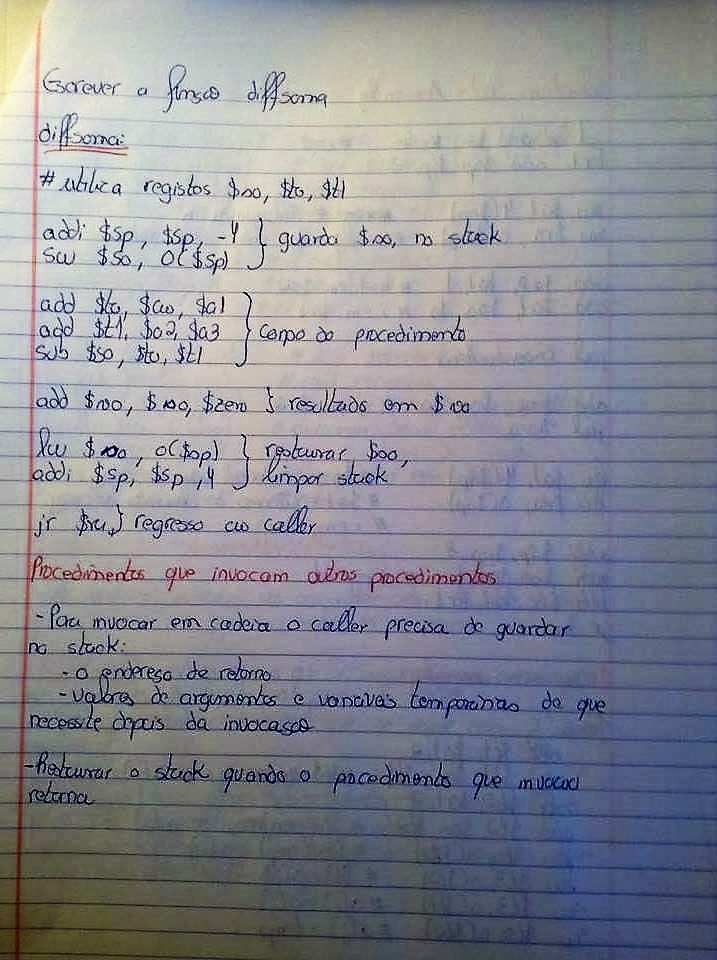 Escrever a função diffsoma
diffsoma:
# utiliza registos $s0, $t0, $t1
addi $sp, $sp, -4 } guarda $s0, no stack
sw $s0, 0($sp)
add $t0, $a0, $a1
add $t1, $a2, $a3 } Corpo do procedimento
sub $s0, $t0, $t1
add $v0, $s0, $zero } resultado em $v0
lw $s0, 0($sp) } restaurar $s0,
addi $sp, $sp, 4 limpar stack
jr $ra } regresso ao caller
Procedimentos que invocam outros procedimentos
- Para invocar em cadeia o caller precisa de guardar
no stack:
- o endereço de retorno
- valores de argumentos e variáveis temporárias de que
necessite depois da invocação
- Restaurar o stack quando o procedimento que invocou
retorna